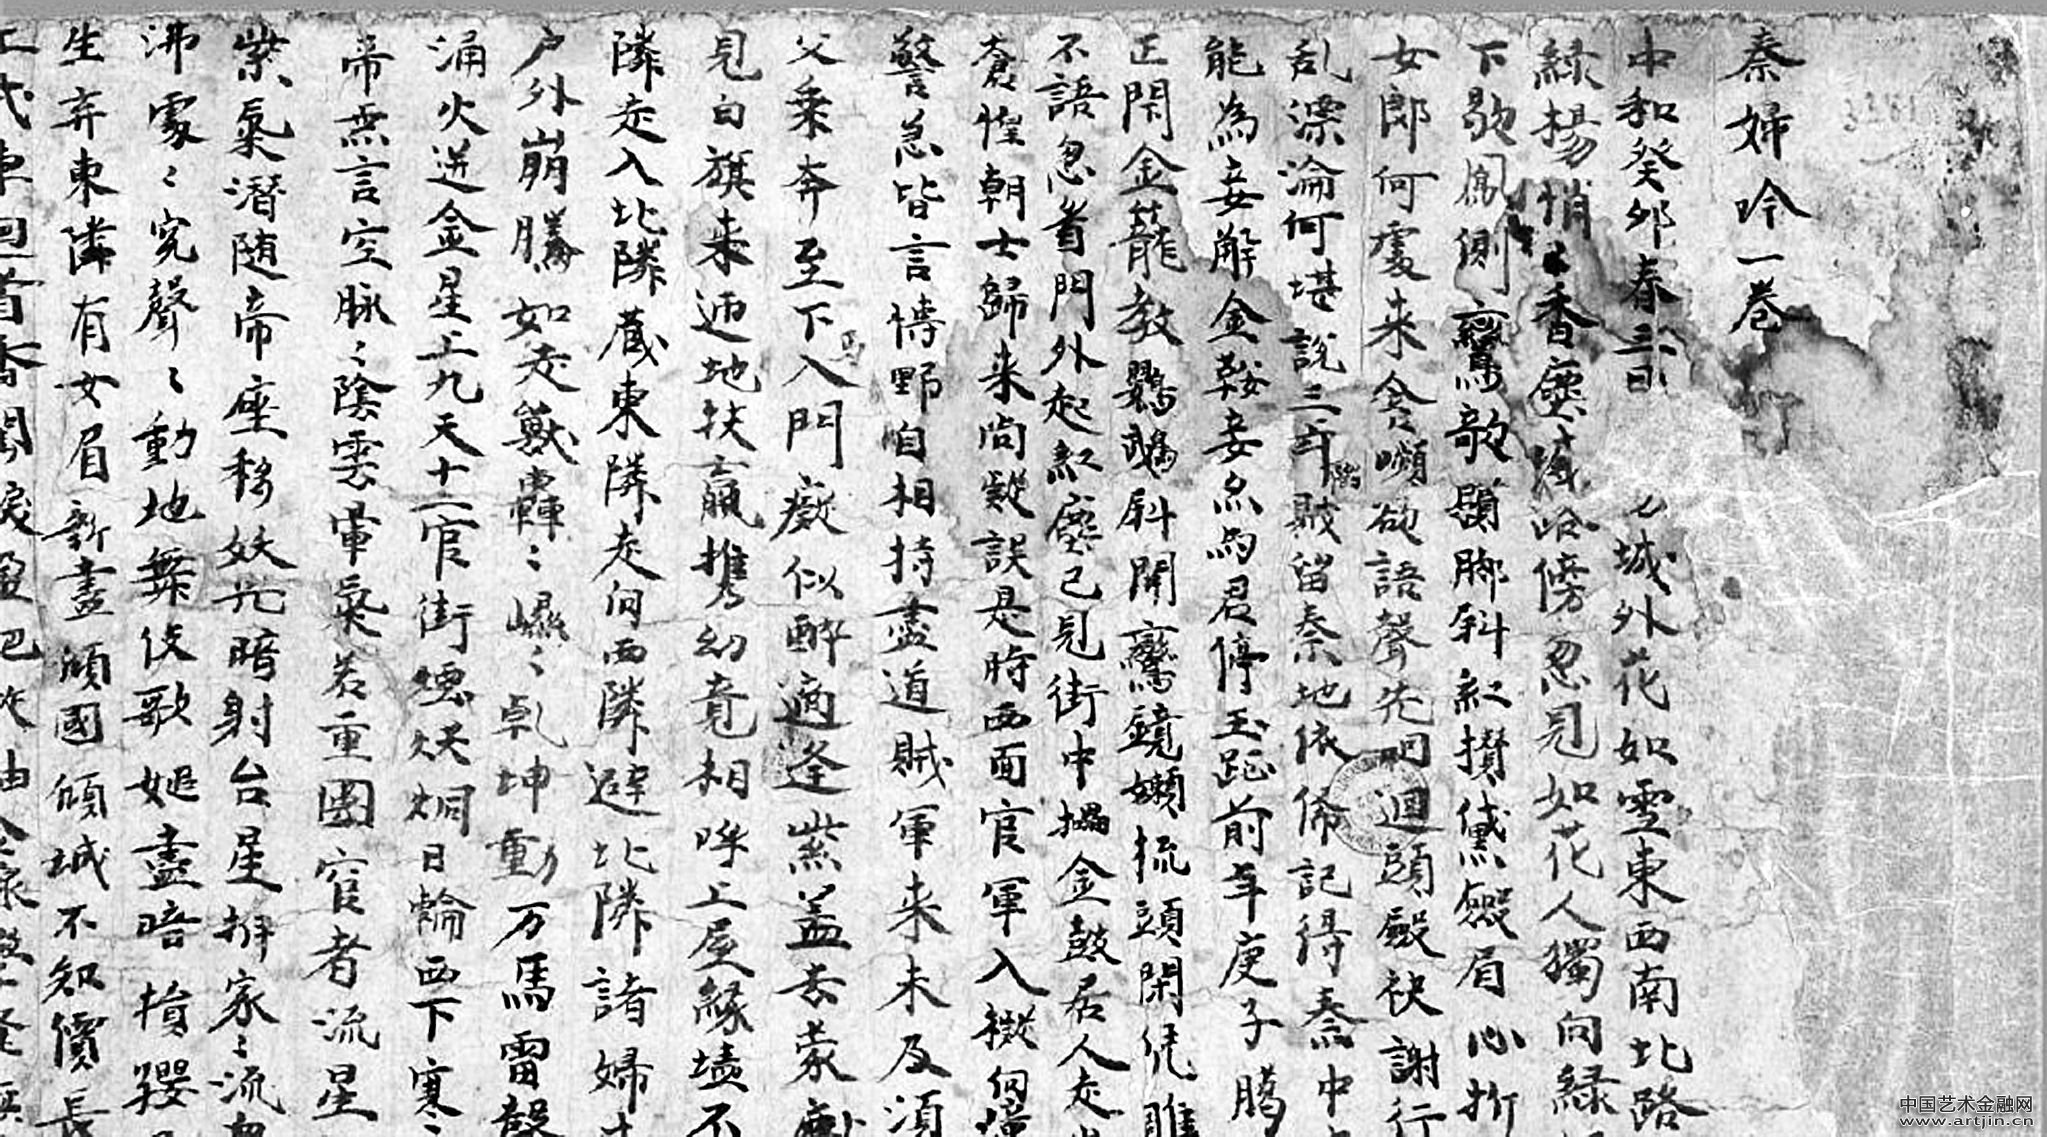 秦婦吟一卷
3381
中和癸卯春三月 城外花如雪東西南北路
緑楊悄〻香塵滅路傍忽見如花人獨向緑
下歇鳳側鸞歌鬢脚斜紅攢黛斂眉心折
女郎何處来含嚬欲語聲先咽迴頭斂袂謝行
乱漂淪何堪說三年陷賊留秦地依俙記得秦中
能為妾解金鞍妾亦為君停玉趾前年庚子臈
正閇金蘢教鸚鵡斜開鸞鏡嬾梳頭閑凭雕
不語忽看門外起紅塵已見街中擂金鼓居人走
倉惶朝士歸来尚疑誤是時西面官軍入擬向潼
警急皆言博野自相持盡道賊軍来未及須
父乗奔至下馬入門癡似醉適逢紫盖去蒙塵
見白旗来迊地扶羸携幼競相呼上屋緣墻不
隣走入北隣藏東隣走向西隣避北隣諸婦
户外崩騰如走獸轟〻崐〻乹坤動万馬雷聲
涌火迸金星上九天十二官街煙烘烔日輪西下寒〻
帝無言空脉〻陰雲暈氣若重圍宦者流星
紫氣潜随帝座移妖光暗射台星拆家〻流血
沸處〻冤聲〻動地舞伎歌姬盡暗損嬰
生弃東隣有女眉新畫傾國傾城不知價長
上戎車回首香閨淚盈把
中国艺术金融网
www.artjin.cn